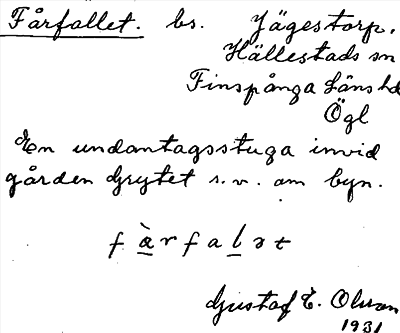 Fårfallet. bs. Jägestorp,
Hällestads sn
Finspånga läns hd
Ögl
En undantagsstuga invid
gården Grytet s.v. om byn.
f à̱ r f a ḻ ə t
Gustaf E. Olsson
1931